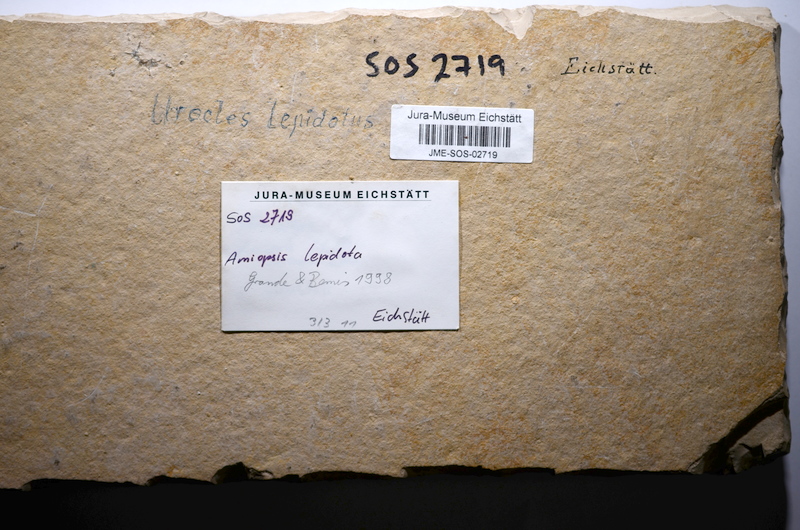 SOS 2719
Eichstätt.
Urocles Lepidotus
Jura-Museum Eichstätt
JME-SOS-02719
JURA-MUSEUM EICHSTÄTT
SOS 2719
Amiopsis lepidota
Grande & Bemis 1998
313 11
Eichstätt